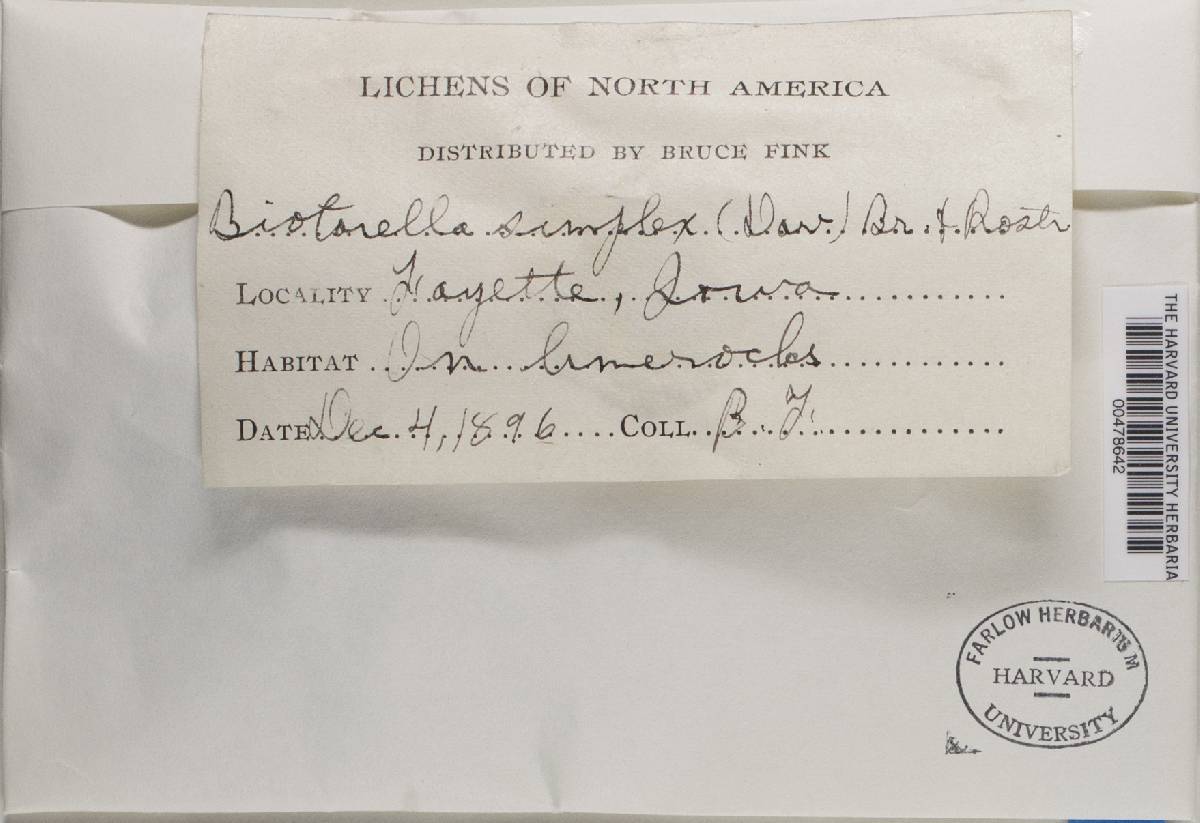 LICHENS OF NORTH AMERICA
DISTRIBUTED BY BRUCE FINK
Biotorella simplex (Dav.) Br. & Rostr
LOCALITY Fayette, Iowa
HABITAT On limerocks
DATE Dec. 4, 1896 COLL. B. F.
THE HARVARD UNIVERSITY HERBARIA
00478642
FARLOW HERBARIUM
HARVARD
UNIVERSITY